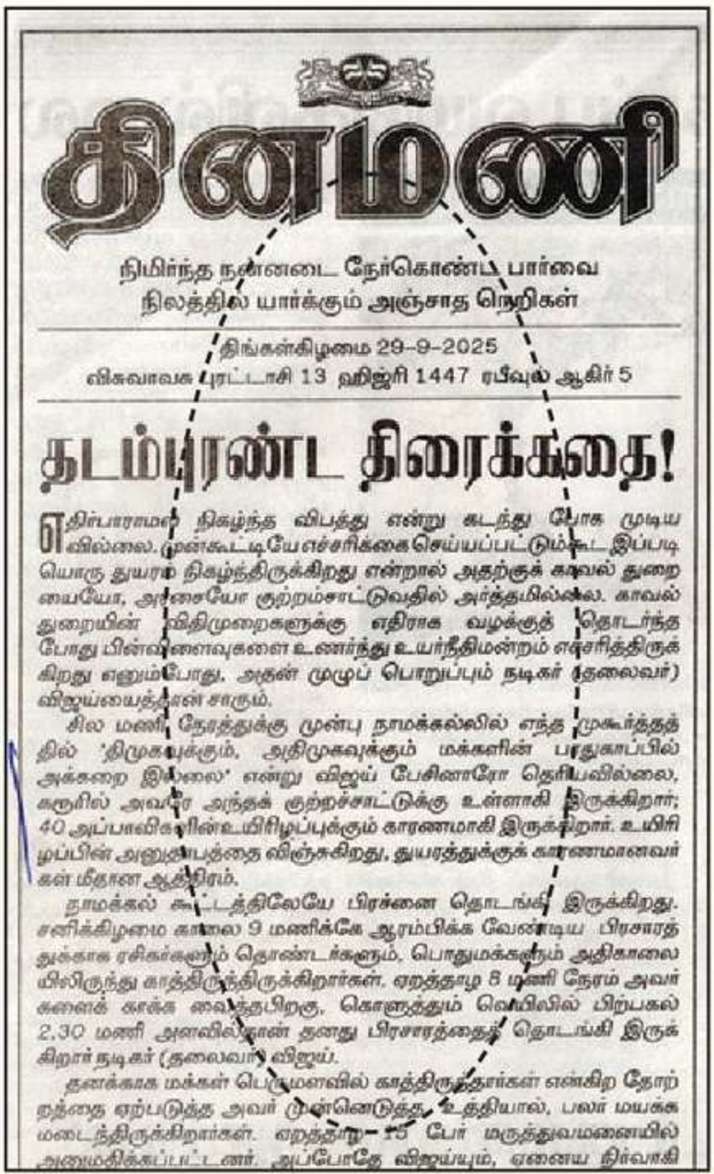 தினமணி
நிமிர்ந்த நன்னடை நேர்கொண்ட பார்வை
நிலத்தில் யார்க்கும் அஞ்சாத நெறிகள்
திங்கள்கிழமை 29-9-2025
விசுவாவசு புரட்டாசி 13 ஹிஜ்ரி 1447 ரபீவுல் ஆகிர் 5
தடம்புரண்ட திரைக்கதை!
எதிர்பாராமல் நிகழ்ந்த விபத்து என்று கடந்து போக முடிய
வில்லை. முன்கூட்டியே எச்சரிக்கை செய்யப்பட்டும்கூட இப்படி
யொரு துயரம் நிகழ்ந்திருக்கிறது என்றால் அதற்குக் காவல் துறை
யையோ, அரசையோ குற்றம்சாட்டுவதில் அர்த்தமில்லை. காவல்
துறையின் விதிமுறைகளுக்கு எதிராக வழக்குத் தொடர்ந்த
போது பின்விளைவுகளை உணர்ந்து உயர்நீதிமன்றம் எச்சரித்திருக்
கிறது எனும்போது, அதன் முழுப் பொறுப்பும் நடிகர் (தலைவர்)
விஜய்யைத்தான் சாரும்.
சில மணி நேரத்துக்கு முன்பு நாமக்கல்லில் எந்த முகூர்த்தத்
தில் 'திமுகவுக்கும், அதிமுகவுக்கும் மக்களின் பாதுகாப்பில்
அக்கறை இல்லை' என்று விஜய் பேசினாரோ தெரியவில்லை,
கரூரில் அவரே அந்தக் குற்றச்சாட்டுக்கு உள்ளாகி இருக்கிறார்;
40 அப்பாவிகளின் உயிரிழப்புக்கும் காரணமாகி இருக்கிறார். உயிரி
ழப்பின் அனுதாபத்தை விஞ்சுகிறது, துயரத்துக்குக் காரணமானவர்
கள் மீதான ஆத்திரம்.
நாமக்கல் கூட்டத்திலேயே பிரச்னை தொடங்கி இருக்கிறது.
சனிக்கிழமை காலை 9 மணிக்கே ஆரம்பிக்க வேண்டிய பிரசாரத்
துக்காக ரசிகர்களும் தொண்டர்களும், பொதுமக்களும் அதிகாலை
யிலிருந்து காத்திருந்திருக்கிறார்கள். ஏறத்தாழ 8 மணி நேரம் அவர்
களைக் காக்க வைத்தபிறகு, கொளுத்தும் வெயிலில் பிற்பகல்
2.30 மணி அளவில்தான் தனது பிரசாரத்தைத் தொடங்கி இருக்
கிறார் நடிகர் (தலைவர்) விஜய்.
தனக்காக மக்கள் பெருமளவில் காத்திருந்தார்கள் என்கிற தோற்
றத்தை ஏற்படுத்த அவர் முன்னெடுத்த உத்தியால், பலர் மயக்க
மடைந்திருக்கிறார்கள். ஏறத்தாழ 15 பேர் மருத்துவமனையில்
அனுமதிக்கப்பட்டனர். அப்போதே விஜய்யும், ஏனைய நிர்வாகி